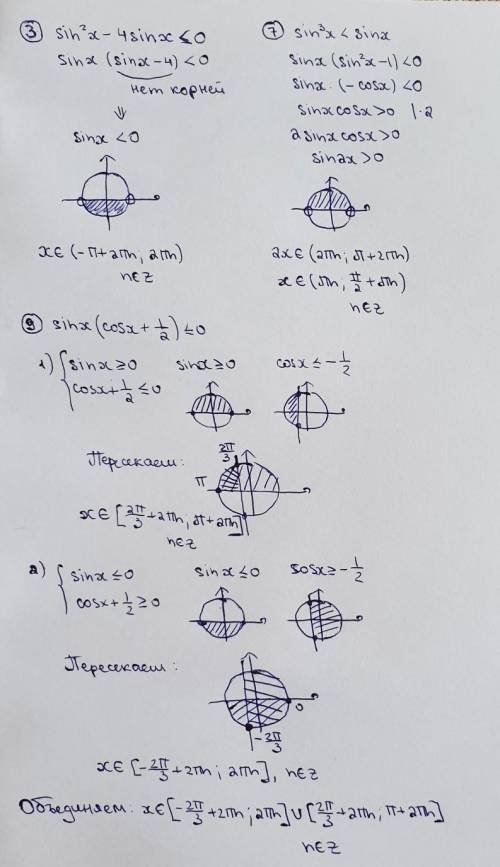 ③ sin²x - 4sinx ≤ 0
sinx (sinx - 4) < 0
нет корней
⇓
sinx < 0
x ∈ (-π + 2πn; 2πn)
n ∈ Z
⑦ sin³x < sinx
sinx (sin²x - 1) < 0
sinx · (-cosx) < 0
sinx cosx > 0 | · 2
2sinx cosx > 0
sin2x > 0
2x ∈ (2πn; π + 2πn)
x ∈ (πn; π/2 + πn)
n ∈ Z
⑨ sinx (cosx + 1/2) ≤ 0
1) { sinx ≥ 0 sinx ≥ 0 cosx ≤ -1/2
cosx + 1/2 ≤ 0
Пересекаем:
2π/3
π
x ∈ [2π/3 + 2πn; π + 2πn]
n ∈ Z
2) { sinx ≤ 0 sinx ≤ 0 cosx ≥ -1/2
cosx + 1/2 ≥ 0
Пересекаем:
0
-2π/3
x ∈ [-2π/3 + 2πn; 2πn], n ∈ Z
Объединяем: x ∈ [-2π/3 + 2πn; 2πn] ∪ [2π/3 + 2πn; π + 2πn]
n ∈ Z